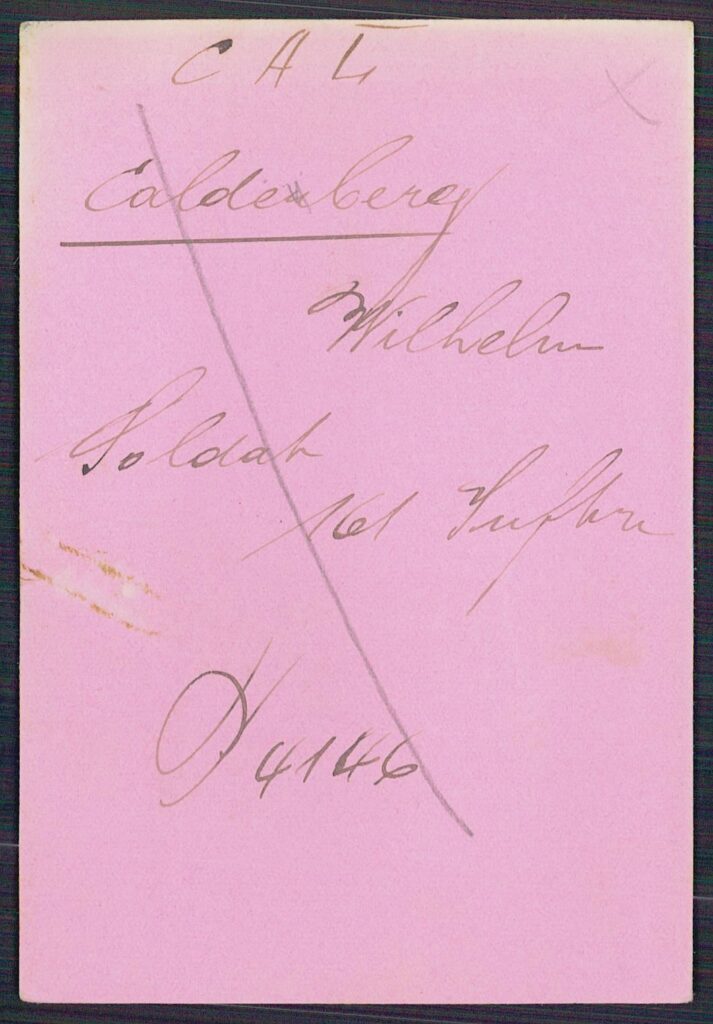 C A L
Caldenberg
Wilhelm
Soldat
161 Inftrie
P 4146